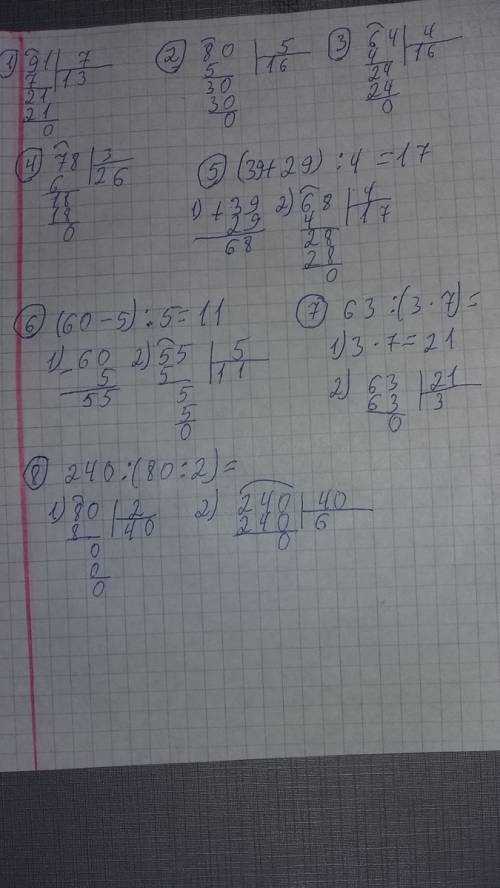 1) 91 | 7
7 | 13
21
21
0
2) 80 | 5
5 | 16
30
30
0
3) 64 | 4
4 | 16
24
24
0
4) 78 | 3
6 | 26
18
18
0
5) (39+29) : 4 = 17
1) + 39
29
68
2) 68 | 4
4 | 17
28
28
0
6) (60-5) : 5 = 11
1) - 60
5
55
2) 55 | 5
5 | 11
5
5
0
7) 63 : (3 · 7) =
1) 3 · 7 = 21
2) 63 | 21
63 | 3
0
8) 240 : (80 : 2) =
1) 80 | 2
8 | 40
0
0
0
2) 240 | 40
240 | 6
0